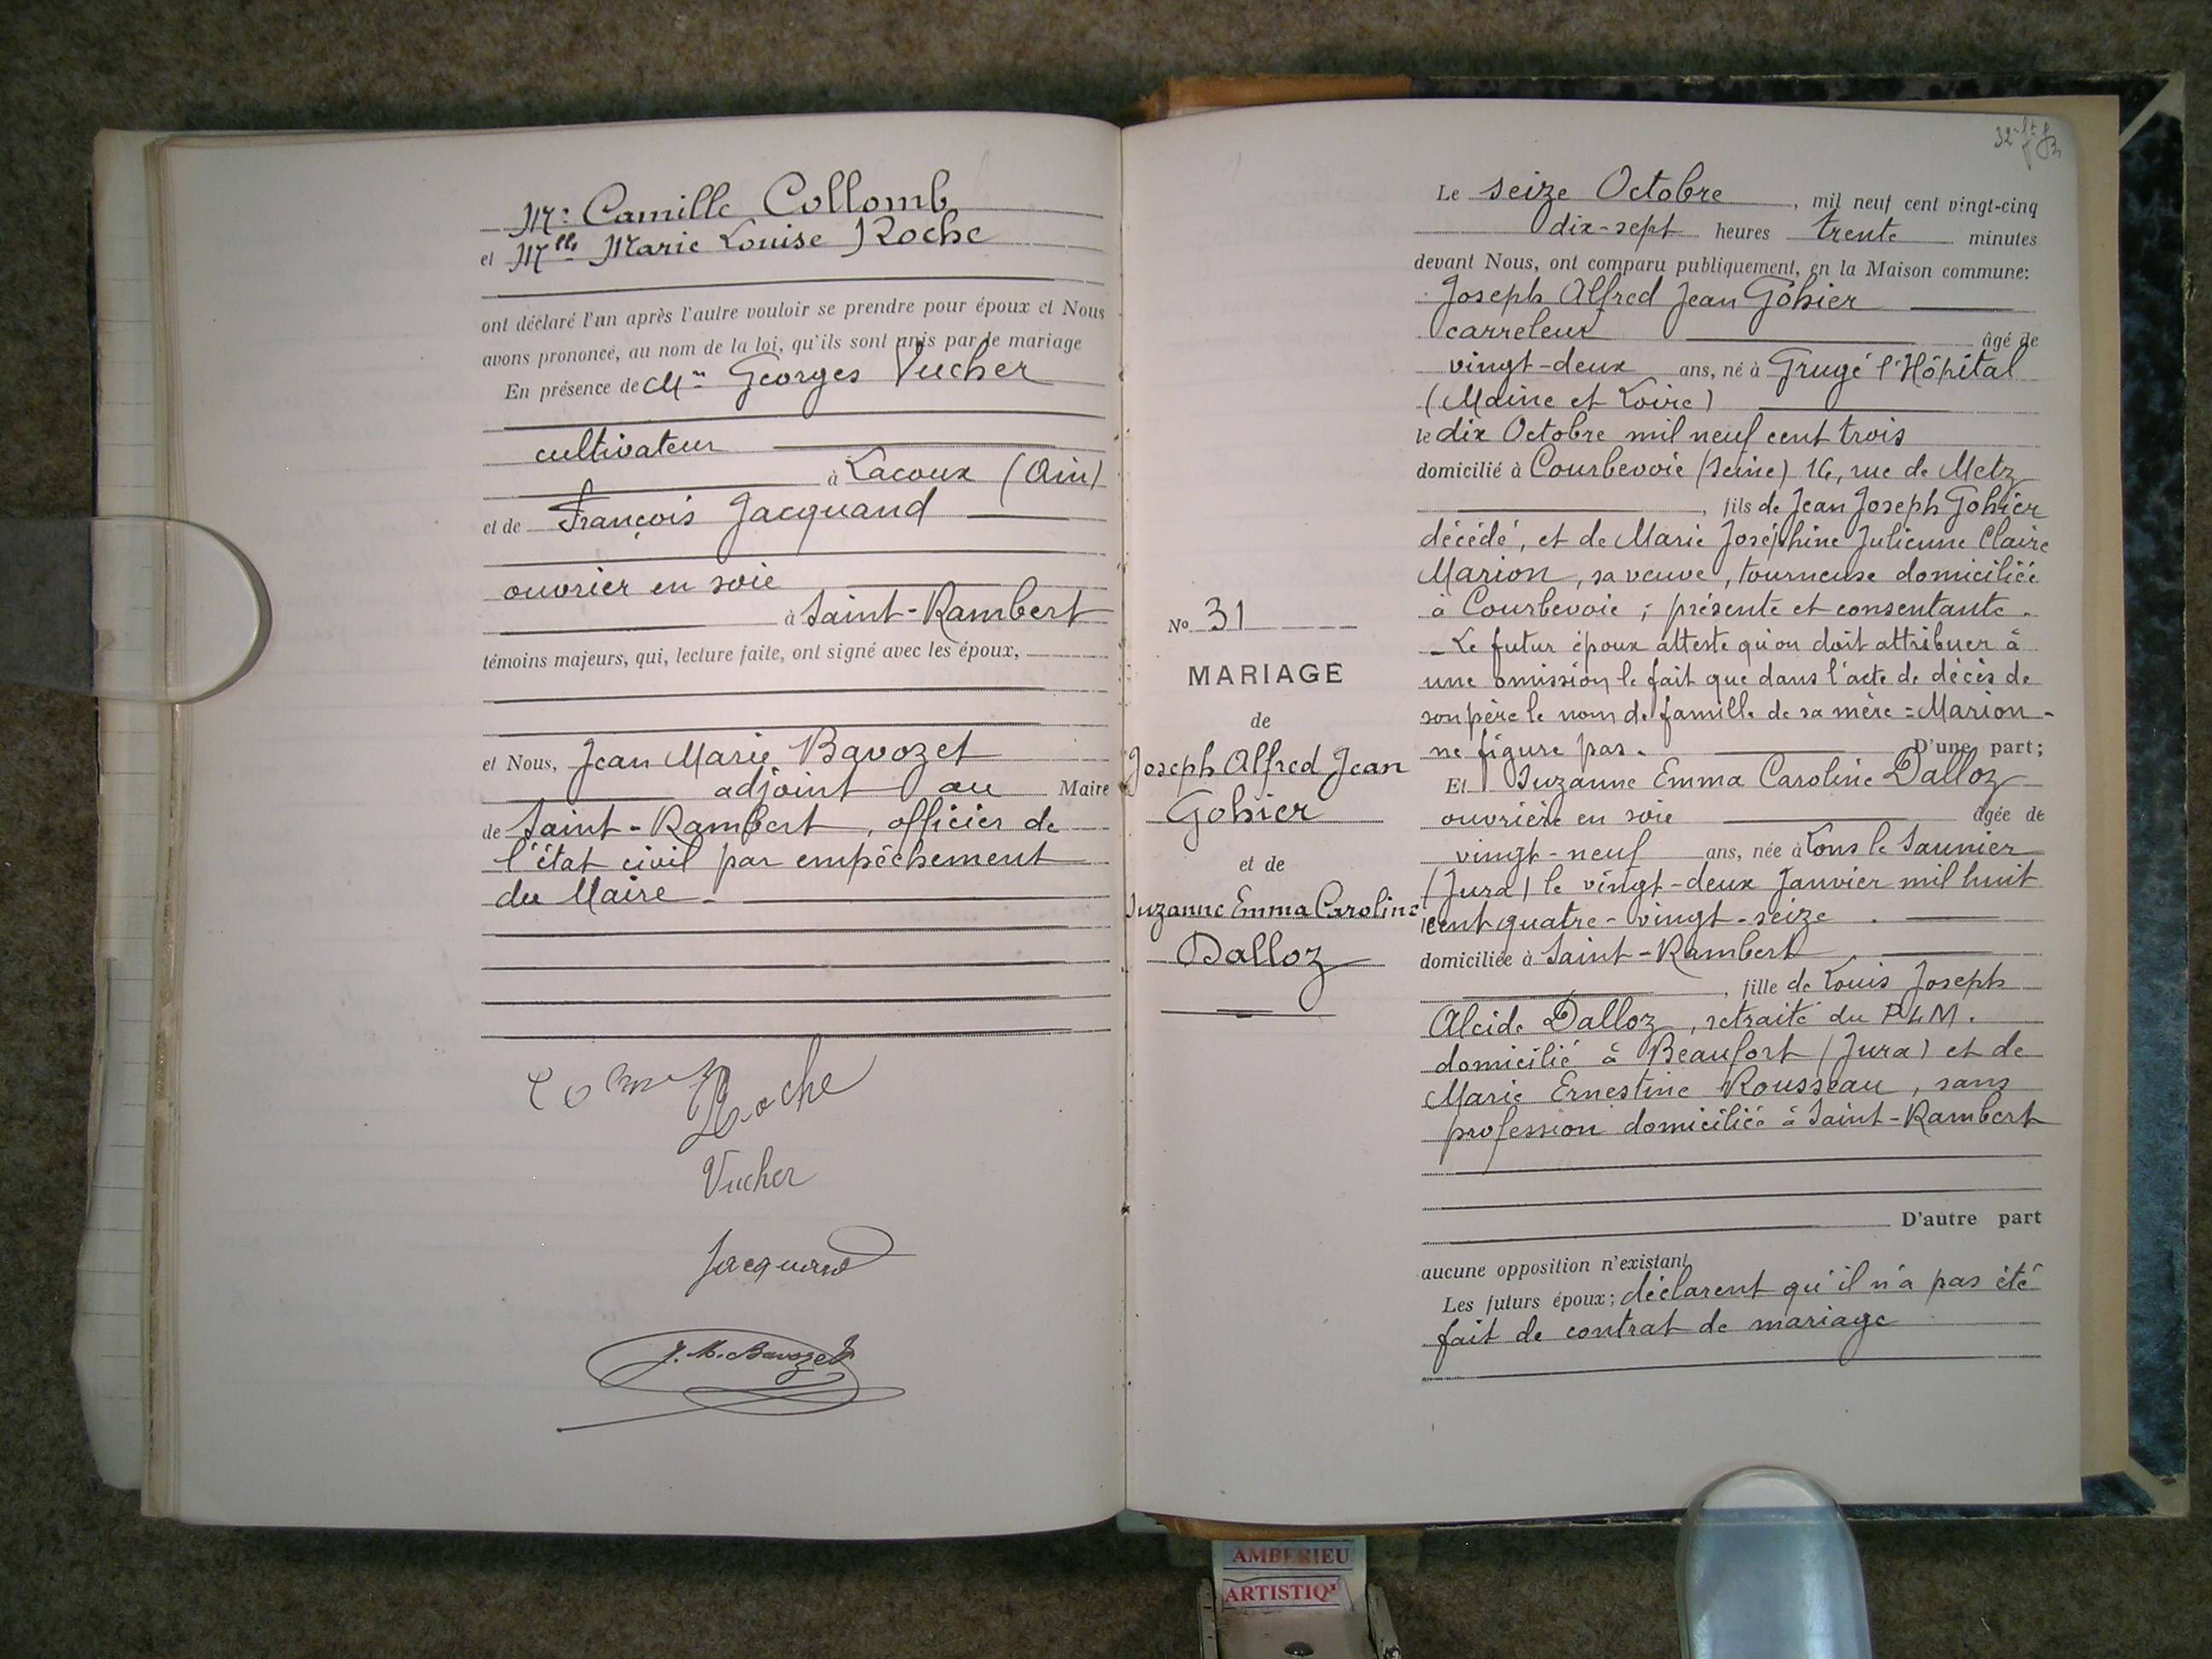 Mr. Camille Collomb
et Mlle Marie Louise Roche
ont déclaré l'un après l'autre vouloir se prendre pour époux et Nous
avons prononcé, au nom de la loi, qu'ils sont unis par le mariage
En présence de Mrs Georges Vucher
cultivateur
à Lacoux (Ain)
et de François Jacquand
ouvrier en soie
à Saint-Rambert
témoins majeurs, qui, lecture faite, ont signé avec les époux,
et Nous, Jean Marie Bavozet
adjoint au Maire
de Saint-Rambert, officier de
l'état civil par empêchement
du Maire.
Roche
Vucher
Jacquand
J. M. Bavozet
32
No 31
MARIAGE
de
Joseph Alfred Jean
Gohier
et de
Suzanne Emma Caroline
Dalloz
Le seize Octobre, mil neuf cent vingt-cinq
dix-sept heures trente minutes
devant Nous, ont comparu publiquement, en la Maison commune:
Joseph Alfred Jean Gohier
carreleur âgé de
vingt-deux ans, né à Grugé l'Hôpital
(Maine et Loire)
le dix Octobre mil neuf cent trois
domicilié à Courbevoie (Seine) 16, rue de Metz
, fils de Jean Joseph Gohier
décédé, et de Marie Joséphine Julienne Claire
Marion, sa veuve, tourneuse domiciliée
à Courbevoie ; présente et consentante.
- Le futur époux atteste qu'on doit attribuer à
une omission le fait que dans l'acte de décès de
son père le nom de famille de sa mère = Marion -
ne figure pas. D'une part;
Et Suzanne Emma Caroline Dalloz
ouvrière en soie âgée de
vingt-neuf ans, née à Lons le Saunier
(Jura) le vingt-deux Janvier mil huit
cent quatre-vingt-seize.
domiciliée à Saint-Rambert
, fille de Louis Joseph
Alcide Dalloz, retraité du P L M.
domicilié à Beaufort (Jura) et de
Marie Ernestine Rousseau, sans
profession domiciliée à Saint-Rambert
D'autre part
aucune opposition n'existant
Les futurs époux; déclarent qu'il n'a pas été
fait de contrat de mariage
AMBERIEU
ARTISTIQ'